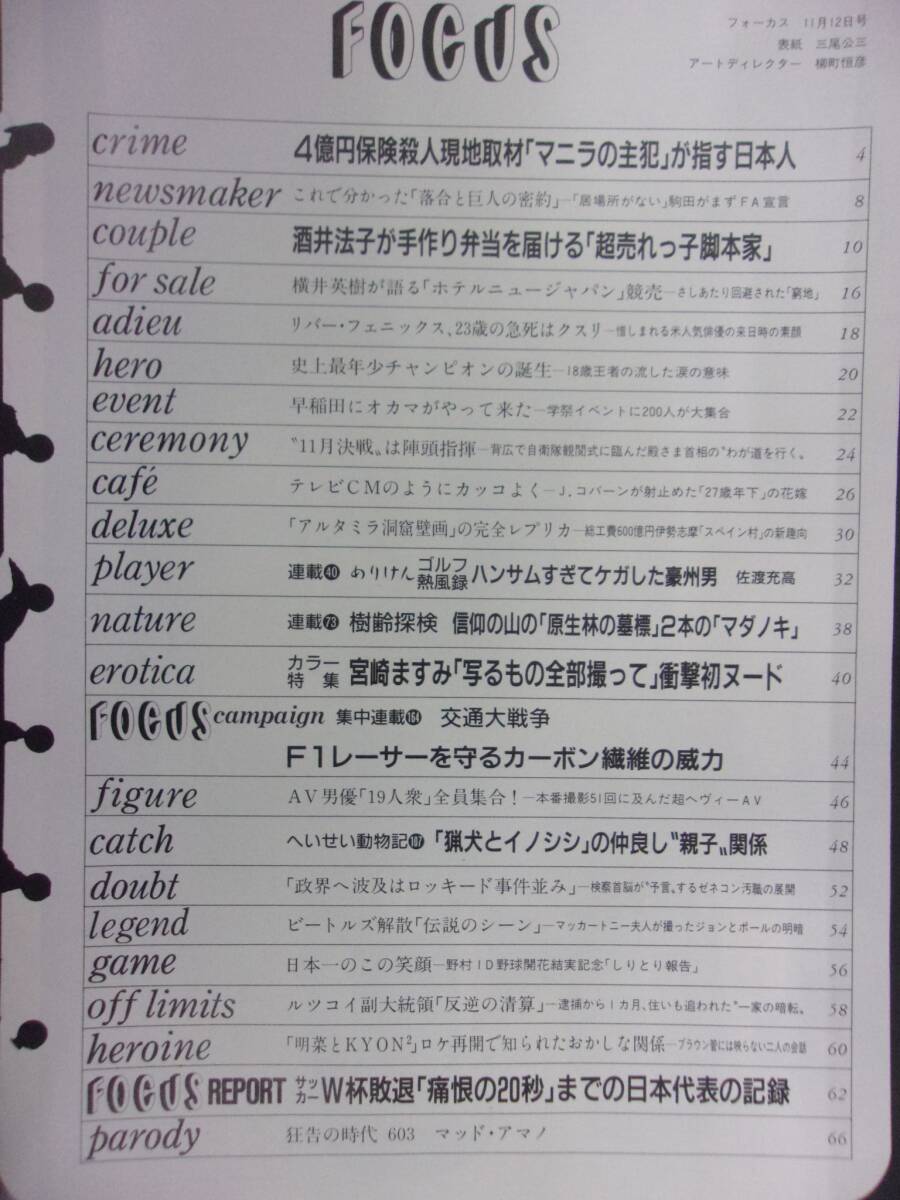 FOCUS
フォーカス 11月12日号
表紙 三尾公三
アートディレクター 柳町恒彦
crime 4億円保険殺人現地取材「マニラの主犯」が指す日本人 4
newsmaker これで分かった「落合と巨人の密約」―「居場所がない」駒田がまずFA宣言 8
couple 酒井法子が手作り弁当を届ける「超売れっ子脚本家」 10
for sale 横井英樹が語る「ホテルニュージャパン」競売―さしあたり回避された「窮地」 16
adieu リバー・フェニックス、23歳の急死はクスリ―惜しまれる米人気俳優の来日時の素顔 18
hero 史上最年少チャンピオンの誕生―18歳王者の流した涙の意味 20
event 早稲田にオカマがやって来た―学祭イベントに200人が大集合 22
ceremony 〝11月決戦〟は陣頭指揮―背広で自衛隊観閲式に臨んだ殿さま首相の〝わが道を行く〟 24
café テレビCMのようにカッコよく―J.コバーンが射止めた「27歳年下」の花嫁 26
deluxe 「アルタミラ洞窟壁画」の完全レプリカ―総工費600億円伊勢志摩「スペイン村」の新趣向 30
player 連載㊵ ありけん ゴルフ熱風録 ハンサムすぎてケガした豪州男 佐渡充高 32
nature 連載73 樹齢探検 信仰の山の「原生林の墓標」2本の「マダノキ」 38
erotica カラー特集 宮崎ますみ「写るもの全部撮って」衝撃初ヌード 40
FOCUS campaign 集中連載164 交通大戦争
F1レーサーを守るカーボン繊維の威力 44
figure AV男優「19人衆」全員集合!―本番撮影51回に及んだ超ヘヴィーAV 46
catch へいせい動物記107 「猟犬とイノシシ」の仲良し〝親子〟関係 48
doubt 「政界へ波及はロッキード事件並み」―検察首脳が〝予言〟するゼネコン汚職の展開 52
legend ビートルズ解散「伝説のシーン」―マッカートニー夫人が撮ったジョンとポールの明暗 54
game 日本一のこの笑顔―野村ID野球開花結実記念「しりとり報告」 56
off limits ルツコイ副大統領「反逆の清算」―逮捕から1カ月、住いも追われた〝一家の暗転〟 58
heroine 「明菜とKYON²」ロケ再開で知られたおかしな関係―ブラウン管には映らない二人の会話 60
FOCUS REPORT サッカーW杯敗退「痛恨の20秒」までの日本代表の記録 62
parody 狂告の時代 603 マッド・アマノ 66